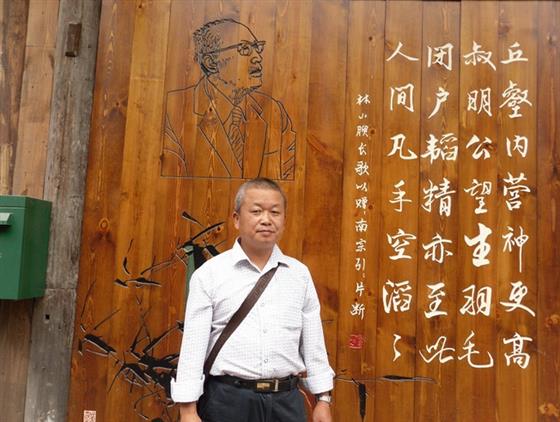 丘壑内营神更高
叔明公望生羽毛
闭户韬精亦至此
人间凡手空滔々
林小颜长歌以赠南宗引片断